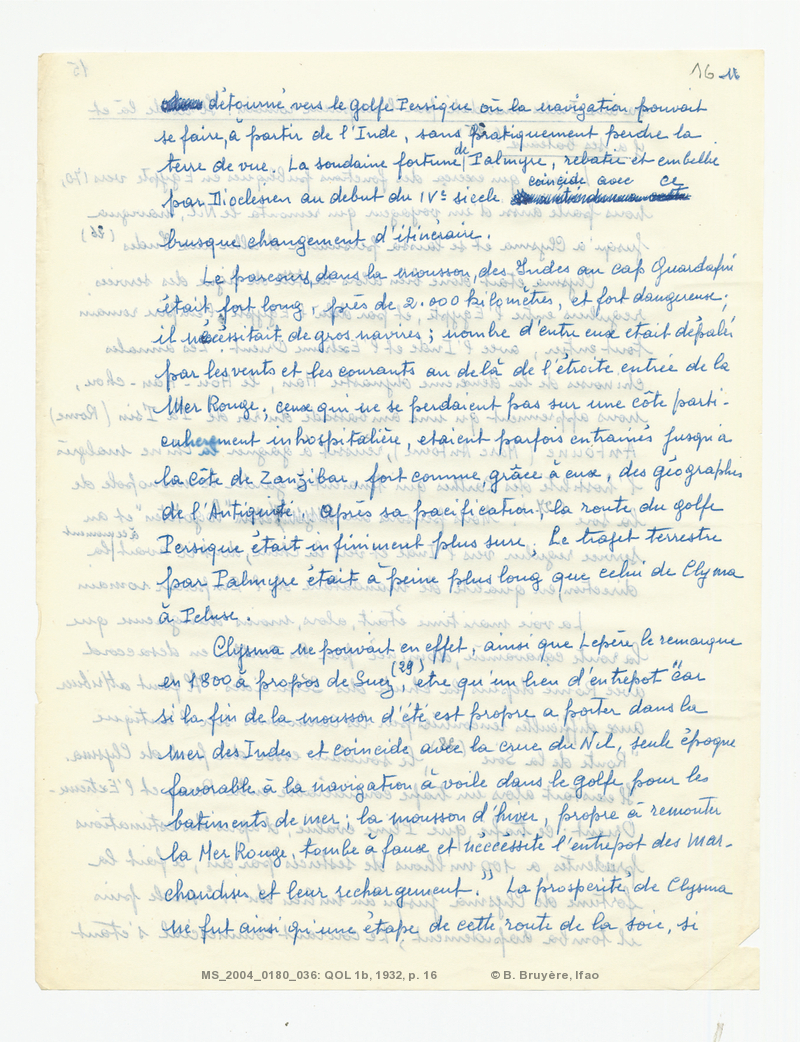 16
détourné vers le golfe Persique où la navigation pouvait
se faire, à partir de l'Inde, sans pratiquement perdre la
terre de vue. La soudaine fortune de Palmyre, rebatie et embellie
par Dioclesien au debut du IVe siecle coïncide avec ce
brusque changement d'itinéraire.
Le parcours, dans la mousson, des Indes au cap Guardafui
était fort long, près de 2.000 kilomètres, et fort dangereux;
il nécéssitait de gros navires; nombre d'entre eux etait dépalés
par les vents et les courants au delà de l'étroite entrée de la
Mer Rouge; ceux qui ne se perdaient pas sur une côte parti-
culierement inhospitalière, etaient parfois entrainés jusqu'à
la côte de Zanzibar, fort connue, grâce à eux, des géographes
de l'Antiquité. Après sa pacification, la route du golfe
Persique était infiniment plus sure. Le trajet terrestre
par Palmyre était à peine plus long que celui de Clysma
à Peluse.
Clysma ne pouvait en effet, ainsi que Lepère le remarque
en 1800 à propos de Suez (29), etre qu'un lieu d'entrepot "car
si la fin de la mousson d'été est propre a porter dans la
mer des Indes et coincide avec la crue du Nil, seule époque
favorable à la navigation à voile dans le golfe pour les
batiments de mer; la mousson d'hiver, propre à remonter
la Mer Rouge, tombe à faux et nécéssite l'entrepot des mar-
chandises et leur rechargement." La prosperité de Clysma
ne fut ainsi qu'une étape de cette route de la soie, si
MS_2004_0180_036: QOL 1b, 1932, p. 16 © B. Bruyère, Ifao